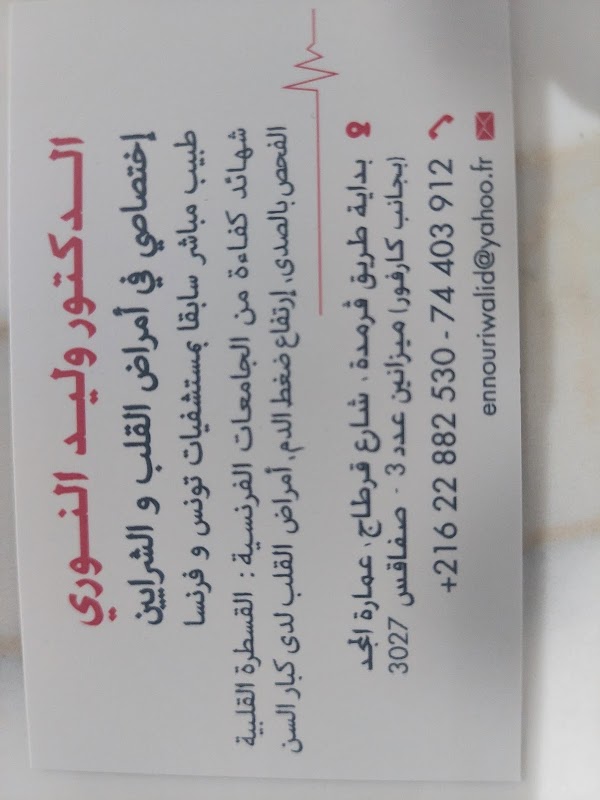 الدكتور وليد النوري
إختصاصي في أمراض القلب و الشرايين
طبيب مباشر سابقا بمستشفيات تونس و فرنسا
شهائد كفاءة من الجامعات الفرنسية : القسطرة القلبية
الفحص بالصدى، إرتفاع ضغط الدم، أمراض القلب لدى كبار السن
بداية طريق قرمدة ، شارع قرطاج، عمارة المجد
(بجانب كارفور) ميزانين عدد 3 - صفاقس 3027
+216 22 882 530 - 74 403 912
ennouriwalid@yahoo.fr